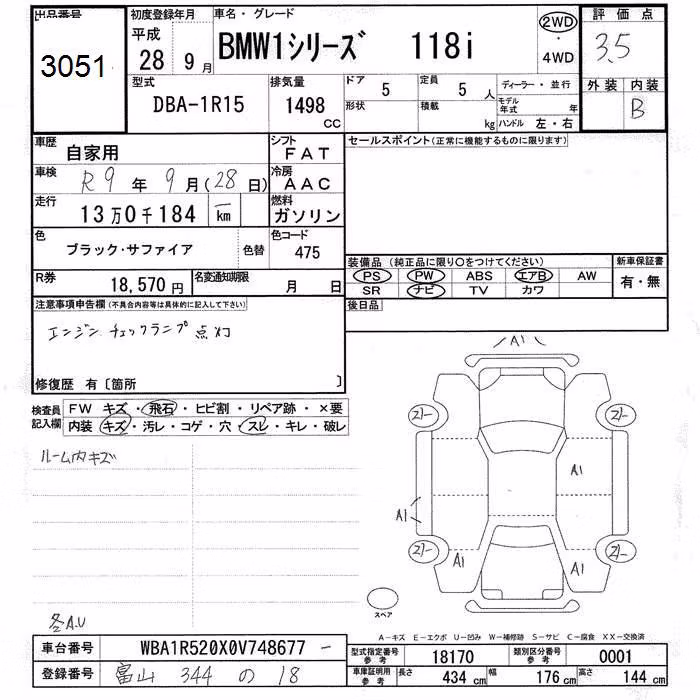 出品番号
3051
初度登録年月
平成
28 9 月
車名・グレード
BMW1シリーズ 118i
2WD
・
4WD
評価点
3.5
外装 内装
B
型式
DBA-1R15
排気量
1498
cc
ドア
5
形状
定員
5 人
積載
kg
ディーラー・並行
モデル年式 年
ハンドル 左・右
車歴
自家用
シフト
FAT
車検
R9 年 9 月(28日)
冷房
AAC
走行
13万0千184
km
燃料
ガソリン
色
ブラック・サファイア
色替
色コード
475
R券
18,570 円
名変通知期限
月 日
セールスポイント(正常に機能するものに限ります)
装備品(純正品に限り○をつけてください)
PS PW ABS エアB AW
SR ナビ TV カワ
新車保証書
有・無
後日品
注意事項申告欄(不具合内容等は具体的に記入して下さい)
エンジンチェックランプ点灯
修復歴 有〔箇所 〕
検査員
記入欄
FW キズ・飛石・ヒビ割・リペア跡・×要
内装 キズ・汚レ・コゲ・穴・スレ・キレ・破レ
ルーム内キズ
冬A.U
A1
21- 21-
A1
A1
21- 21-
A1 A1
スペア
A-キズ E-エクボ U-凹み W-補修跡 S-サビ C-腐食 XX-交換済
車台番号
WBA1R520X0V748677 -
登録番号
富山 344 の 18
型式指定番号
参考
18170
類別区分番号
参考
0001
車庫証明用
参考
長さ
434 cm
幅
176 cm
高さ
144 cm